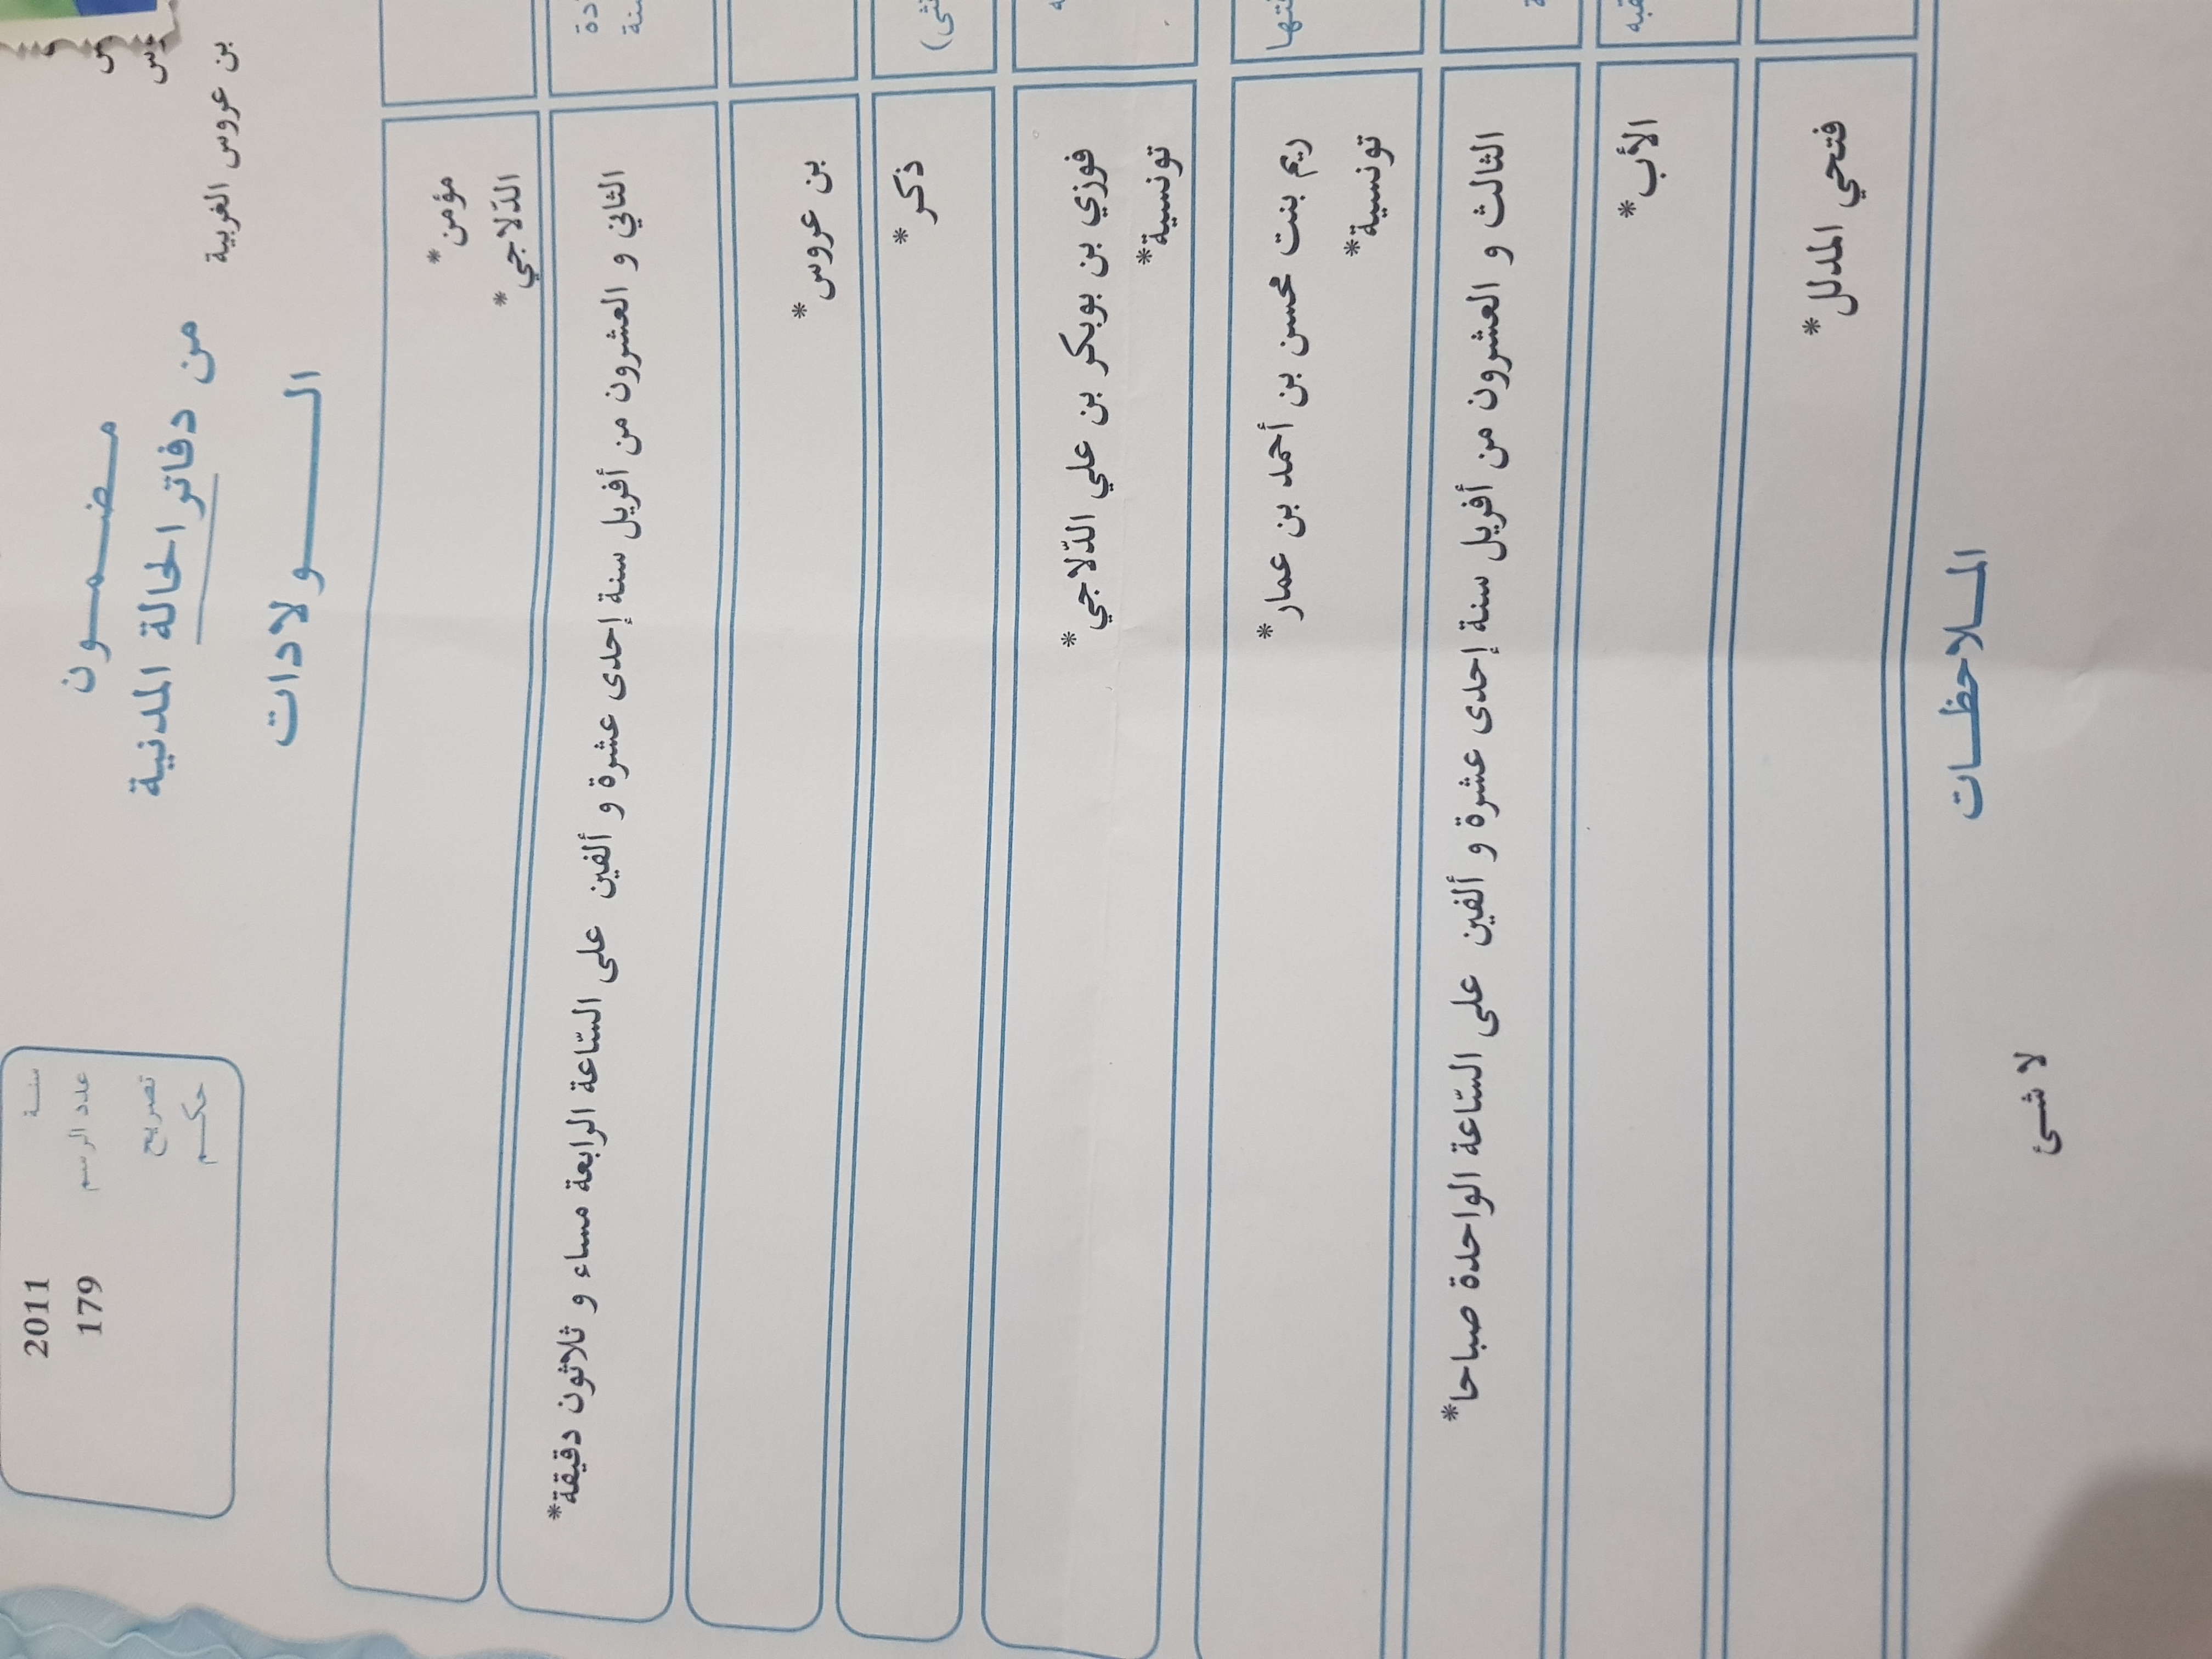 مضمون
من دفاتر الحالة المدنية
الولادات
بن عروس الغربية
سنة 2011
عدد الرسم 179
تصريح
حكم
مؤمن*
الدّلاجي*
الثاني و العشرون من أفريل سنة إحدى عشرة و ألفين على السّاعة الرابعة مساء و ثلاثون دقيقة*
بن عروس*
ذكر*
فوزي بن بوبكر بن علي الدّلاجي*
تونسية*
ريم بنت محسن بن أحمد بن عمار*
تونسية*
الثالث و العشرون من أفريل سنة إحدى عشرة و ألفين على السّاعة الواحدة صباحا*
الأب*
فتحي المدلل*
الملاحظات
لا شئ